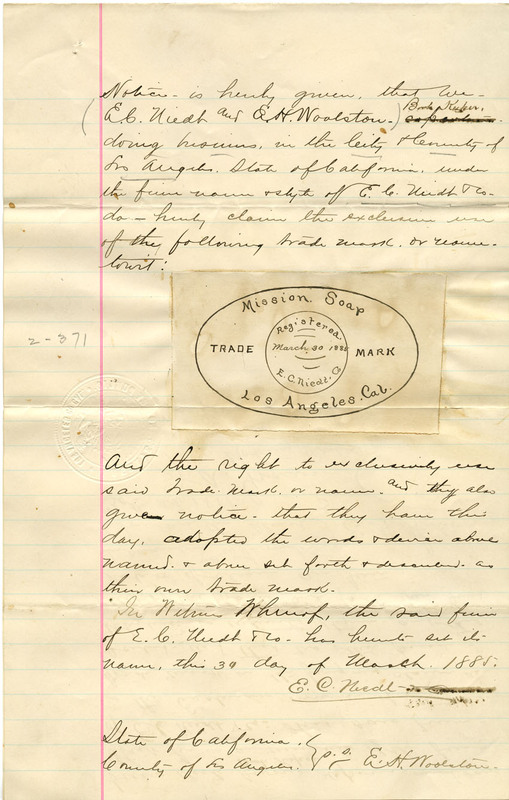 Notice is hereby given, that we
Book Keeper,
(E. C. Niedt and E. H. Woolston)
doing business, in the City & County of
Los Angeles, State of California, under
the firm name & style of E. C. Niedt & Co
do hereby claim the exclusive use
of the following trade mark, or name
towit:
2-371
Mission Soap
Registered
TRADE March 30 1885 MARK
E. C. Niedt. Co
Los Angeles. Cal.
And the right to exclusively use
said trade mark, or name, and they also
give notice that they have this
day, adopted the words & device above
named & above set forth & described as
their own trade mark.
In Witness Whereof, the said firm
of E. C. Niedt & Co has hereunto set its
name, this 30 day of March 1885.
E. C. Niedt
State of California.
County of Los Angeles. } S. S. E. H. Woolston